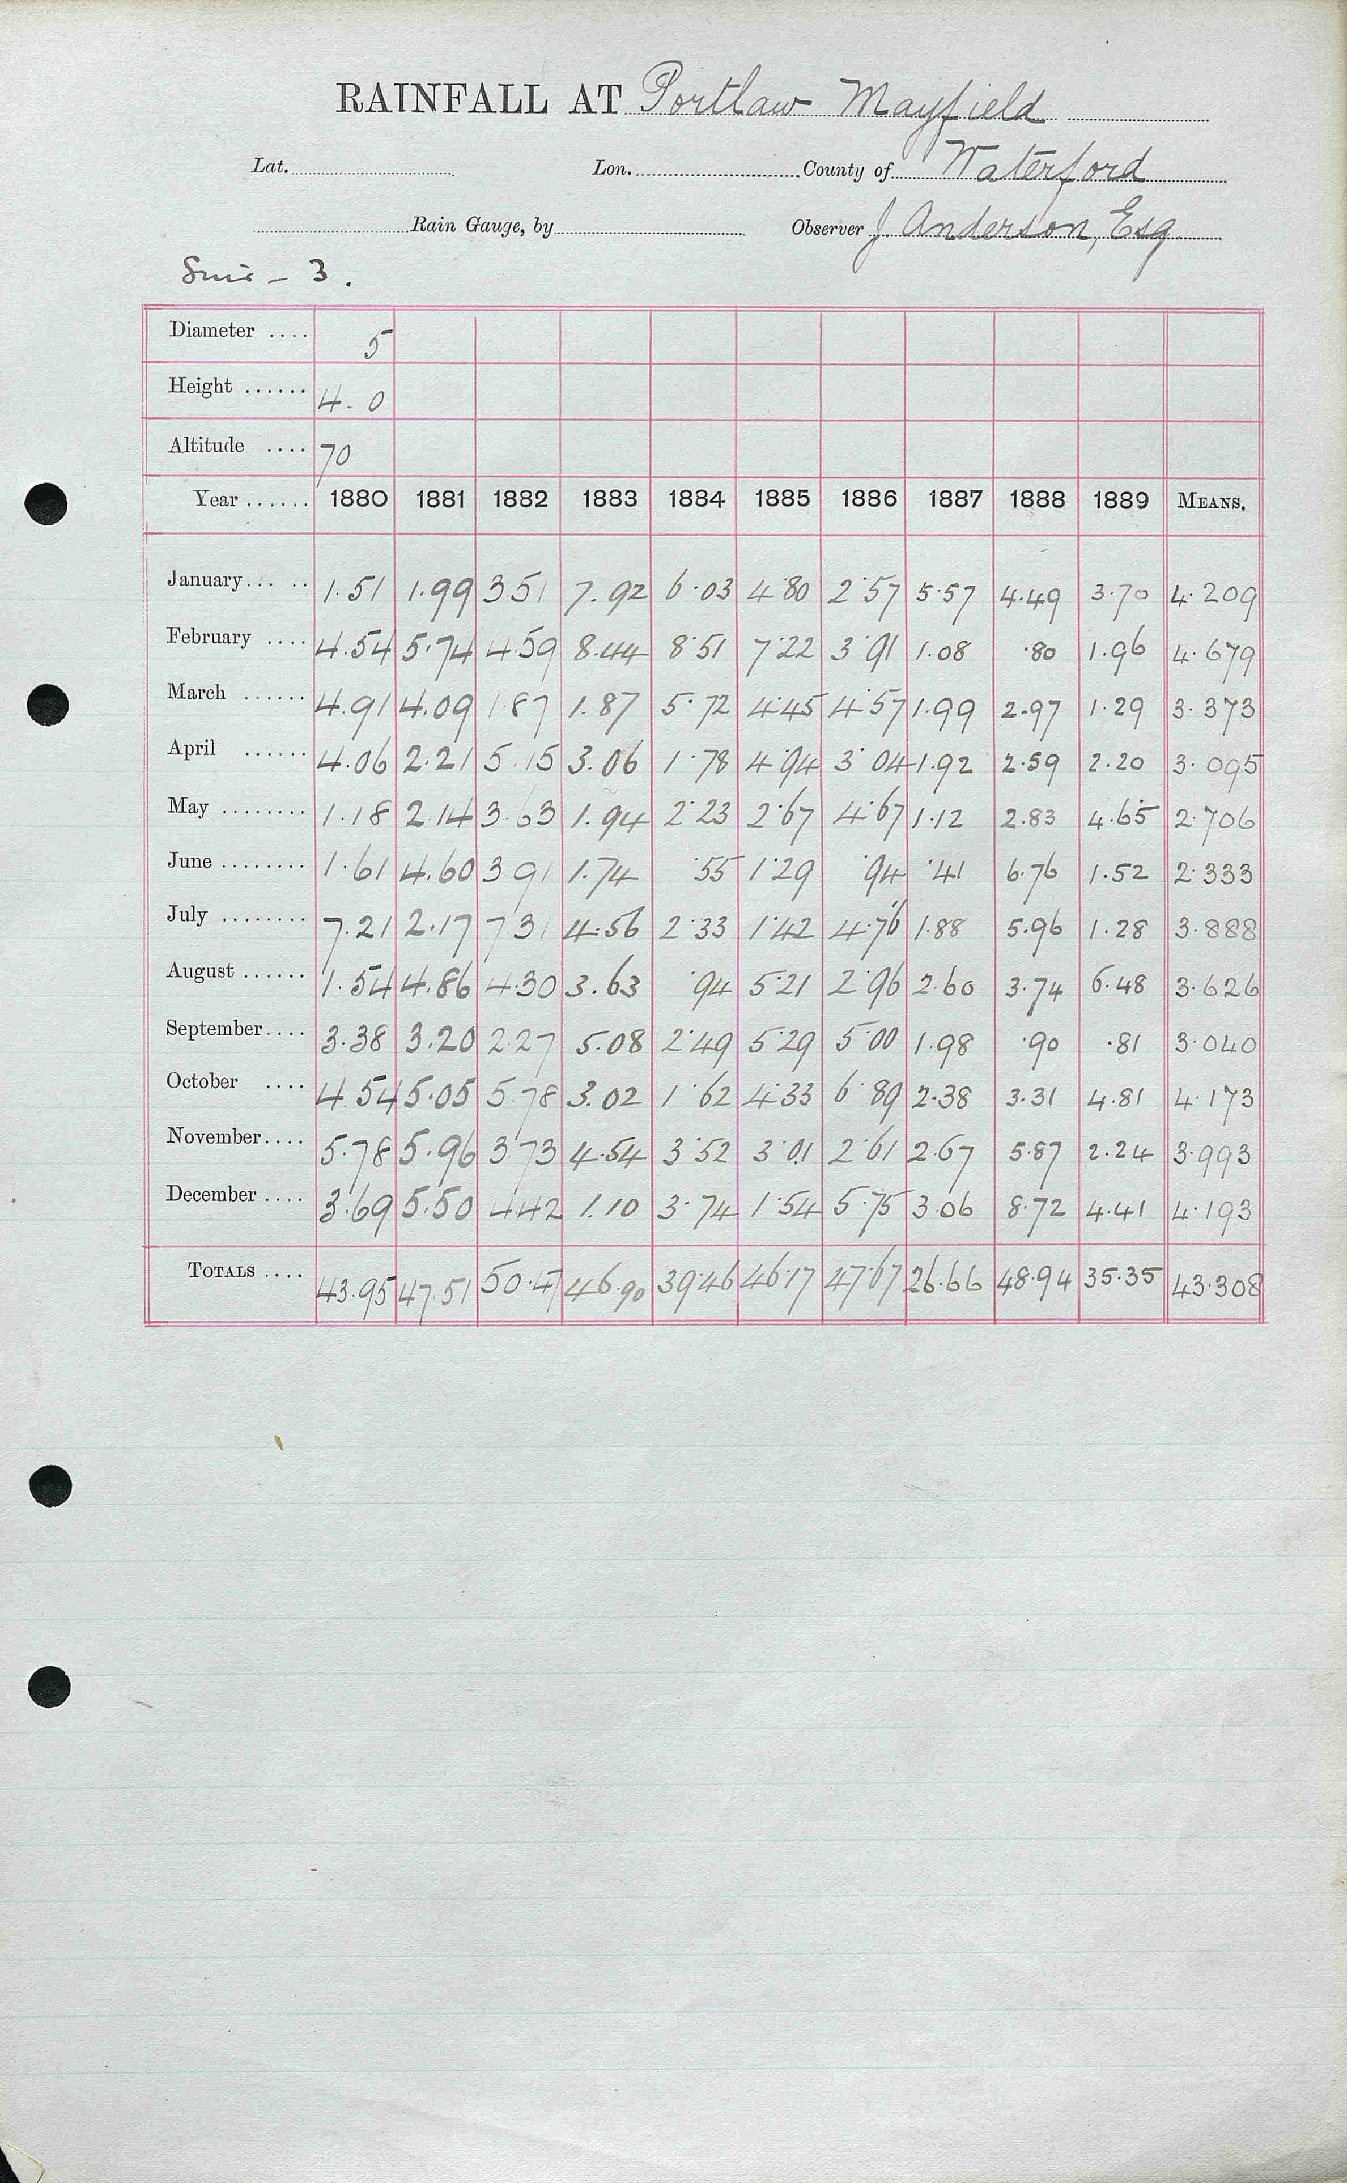 RAINFALL AT Portlaw Mayfield
Lat. Lon. County of Waterford
Rain Gauge, by Observer J. Anderson, Esq
Suir - 3.
Diameter .... 5
Height ...... 4.0
Altitude .... 70
Year ...... 1880 1881 1882 1883 1884 1885 1886 1887 1888 1889 MEANS.
January... .. 1.51 1.99 3 51 7.92 6.03 4.80 2.57 5.57 4.49 3.70 4.209
February .... 4.54 5.74 4.59 8.44 8.51 7.22 3.91 1.08 .80 1.96 4.679
March ...... 4.91 4.09 1 87 1.87 5.72 4.45 4.57 1.99 2.97 1.29 3.373
April ...... 4.06 2.21 5.15 3.06 1.78 4.94 3.04 1.92 2.59 2.20 3.095
May ........ 1.18 2.14 3.63 1.94 2.23 2.67 4.67 1.12 2.83 4.65 2.706
June ........ 1.61 4.60 3 91 1.74 .55 1.29 .94 .41 6.76 1.52 2.333
July ........ 7.21 2.17 7 31 4.56 2.33 1.42 4.76 1.88 5.96 1.28 3.888
August ...... 1.54 4.86 4.30 3.63 .94 5.21 2.96 2.60 3.74 6.48 3.626
September.... 3.38 3.20 2.27 5.08 2.49 5.29 5.00 1.98 .90 .81 3.040
October .... 4.54 5.05 5.78 3.02 1.62 4.33 6.89 2.38 3.31 4.81 4.173
November.... 5.78 5.96 3.73 4.54 3.52 3.01 2.61 2.67 5.87 2.24 3.993
December .... 3.69 5.50 4.42 1.10 3.74 1.54 5.75 3.06 8.72 4.41 4.193
TOTALS .... 43.95 47.51 50.47 46.90 39.46 46.17 47.67 26.66 48.94 35.35 43.308